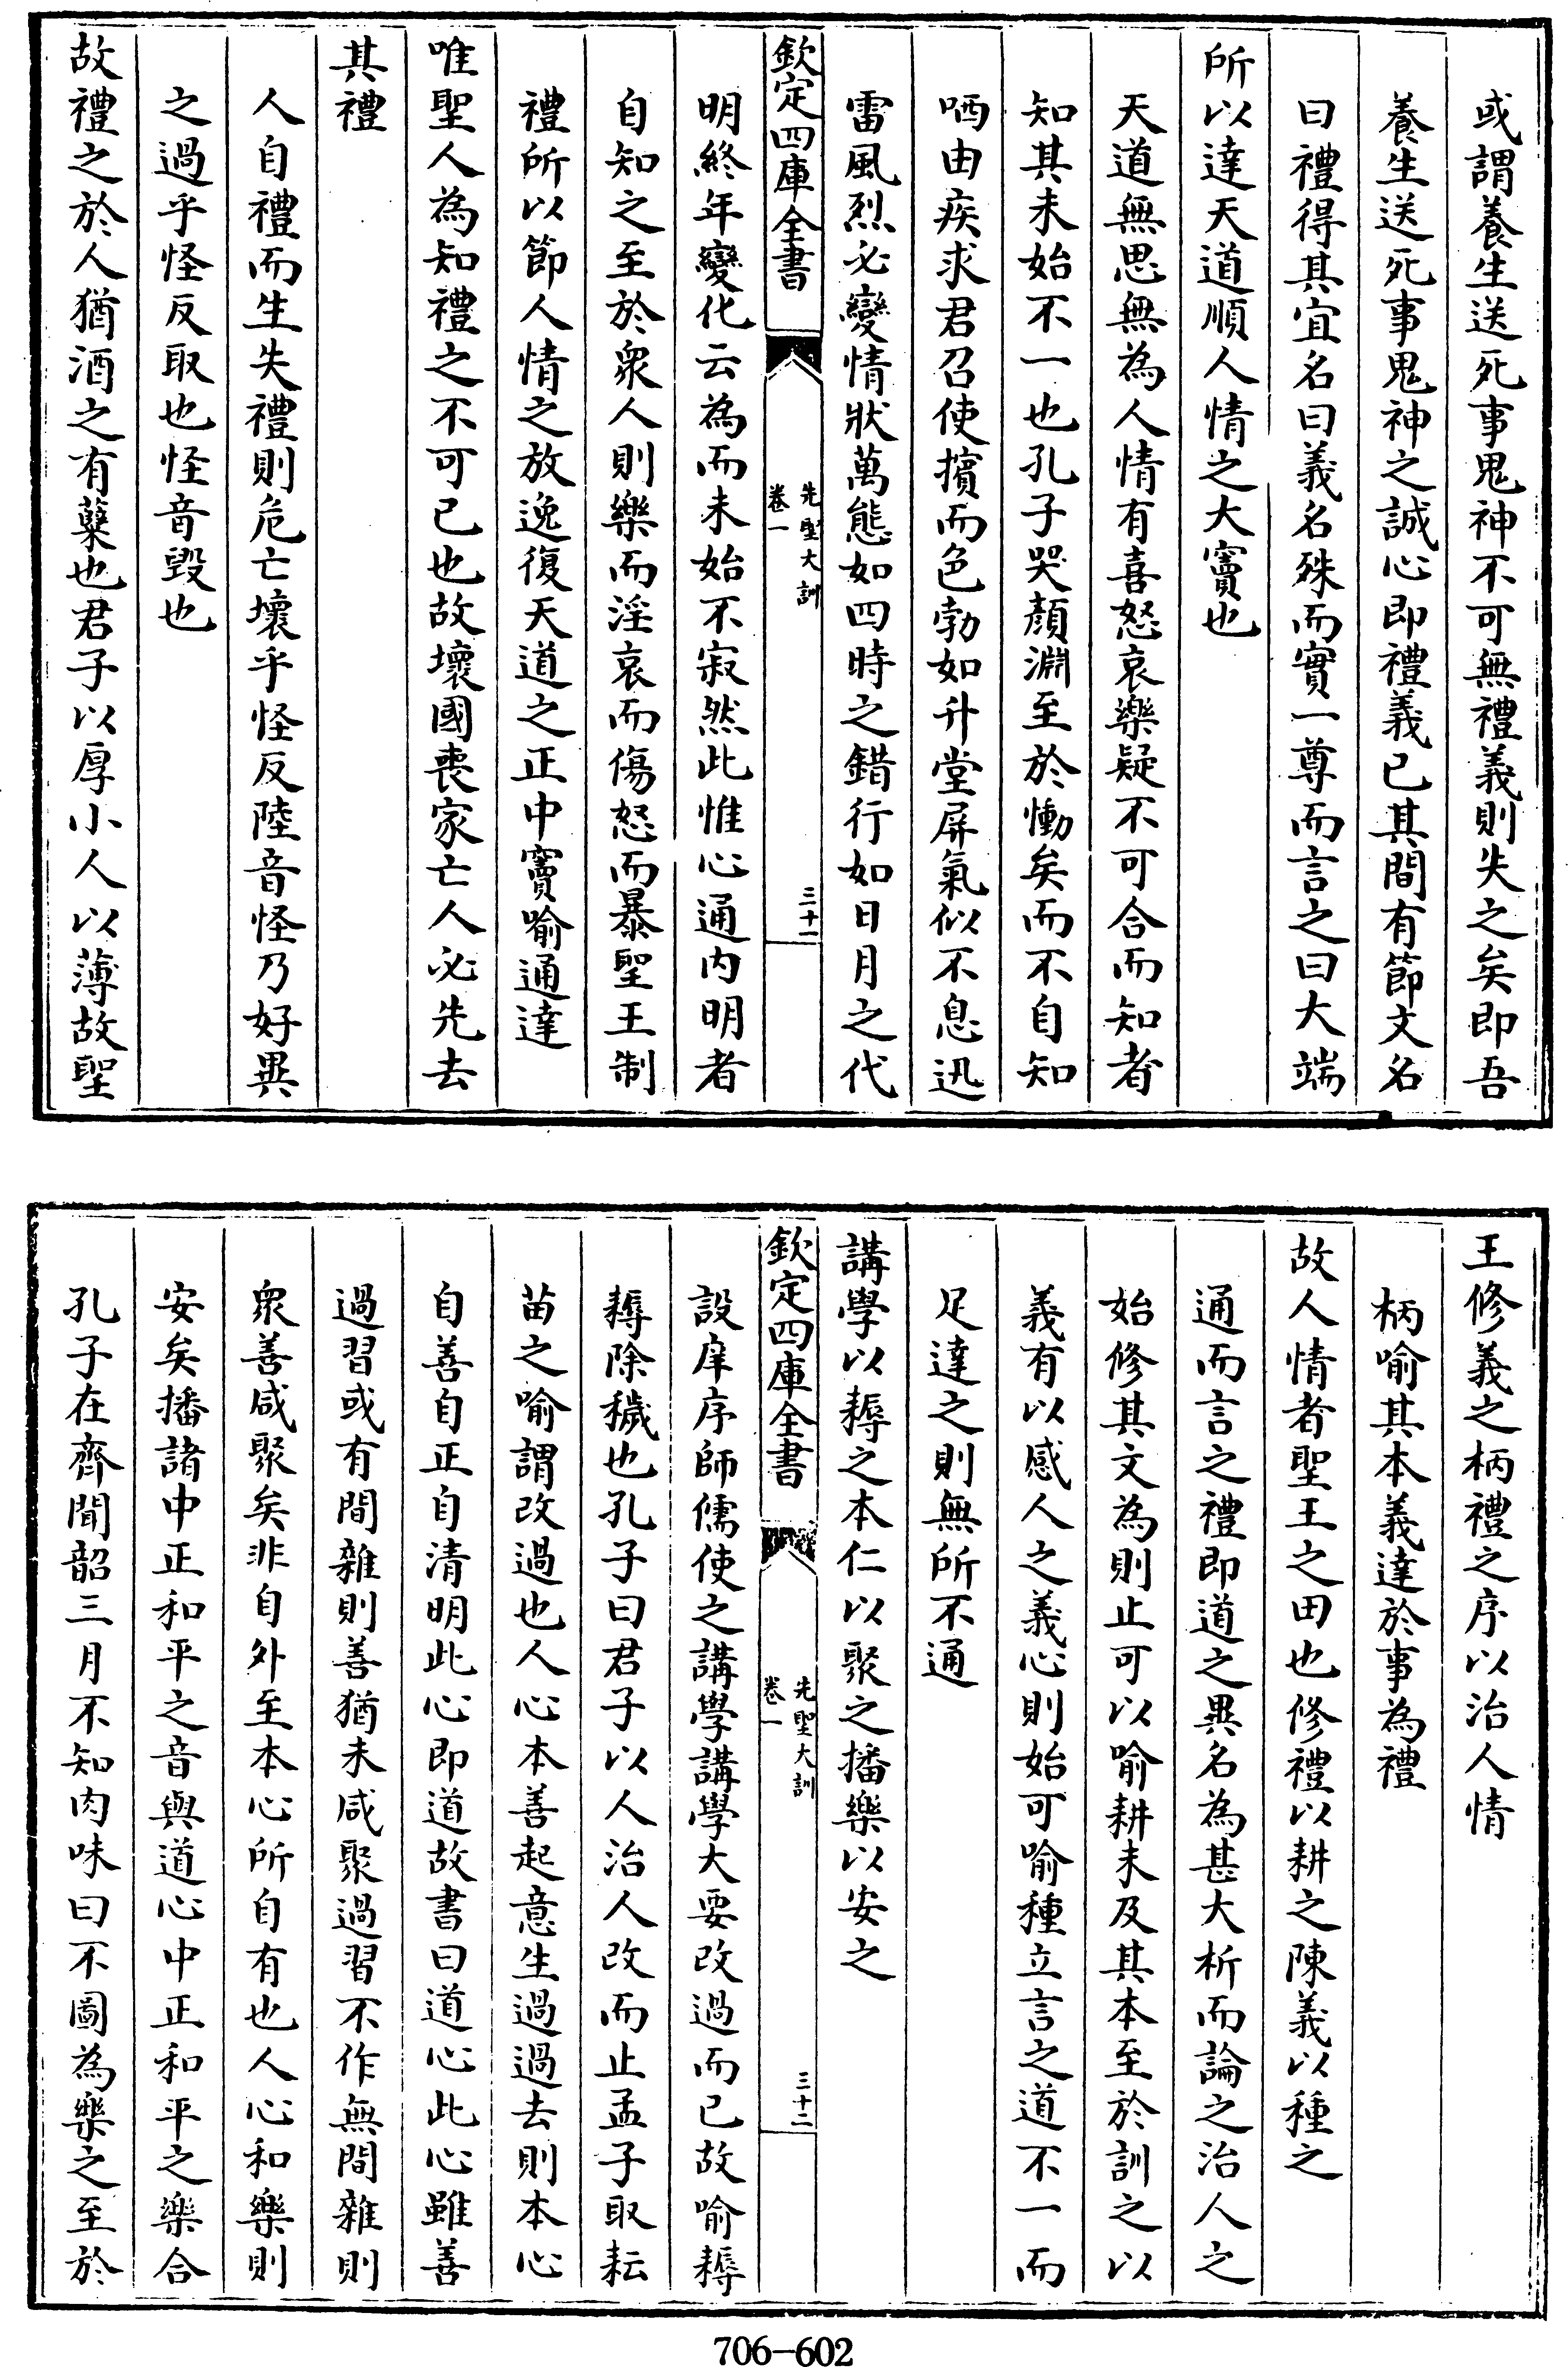 或謂養生送死事鬼神不可無禮義則失之矣即吾
養生送死事鬼神之誠心即禮義已其間有節文名
曰禮得其宜名曰義名殊而實一尊而言之曰大端
所以達天道順人情之大竇也
天道無思無為人情有喜怒哀樂疑不可合而知者
知其未始不一也孔子哭顏淵至於慟矣而不自知
哂由疾求君召使擯而色勃如升堂屏氣似不息迅
雷風烈必變情狀萬態如四時之錯行如日月之代
欽定四庫全書
先聖大訓
卷一
三十一
明終年變化云為而未始不寂然此惟心通內明者
自知之至於衆人則樂而淫哀而傷怒而暴聖王制
禮所以節人情之放逸復天道之正中竇喻通達
唯聖人為知禮之不可已也故壞國喪家亡人必先去
其禮
人自禮而生失禮則危亡壞乎怪反陸音怪乃好異
之過乎怪反取也怪音毀也
故禮之於人猶酒之有蘖也君子以厚小人以薄故聖
王修義之柄禮之序以治人情
柄喻其本義達於事為禮
故人情者聖王之田也修禮以耕之陳義以種之
通而言之禮即道之異名為甚大析而論之治人之
始修其文為則止可以喻耕未及其本至於訓之以
義有以感人之義心則始可喻種立言之道不一而
足達之則無所不通
講學以耨之本仁以聚之播樂以安之
欽定四庫全書
先聖大訓
卷一
三十二
設庠序師儒使之講學講學大要改過而已故喻耨
耨除穢也孔子曰君子以人治人改而止孟子取耘
苗之喻謂改過也人心本善起意生過過去則本心
自善自正自清明此心即道故書曰道心此心雖善
過習或有間雜則善猶未咸聚過習不作無間雜則
衆善咸聚矣非自外至本心所自有也人心和樂則
安矣播諸中正和平之音與道心中正和平之樂合
孔子在齊聞韶三月不知肉味曰不圖為樂之至於
706-602